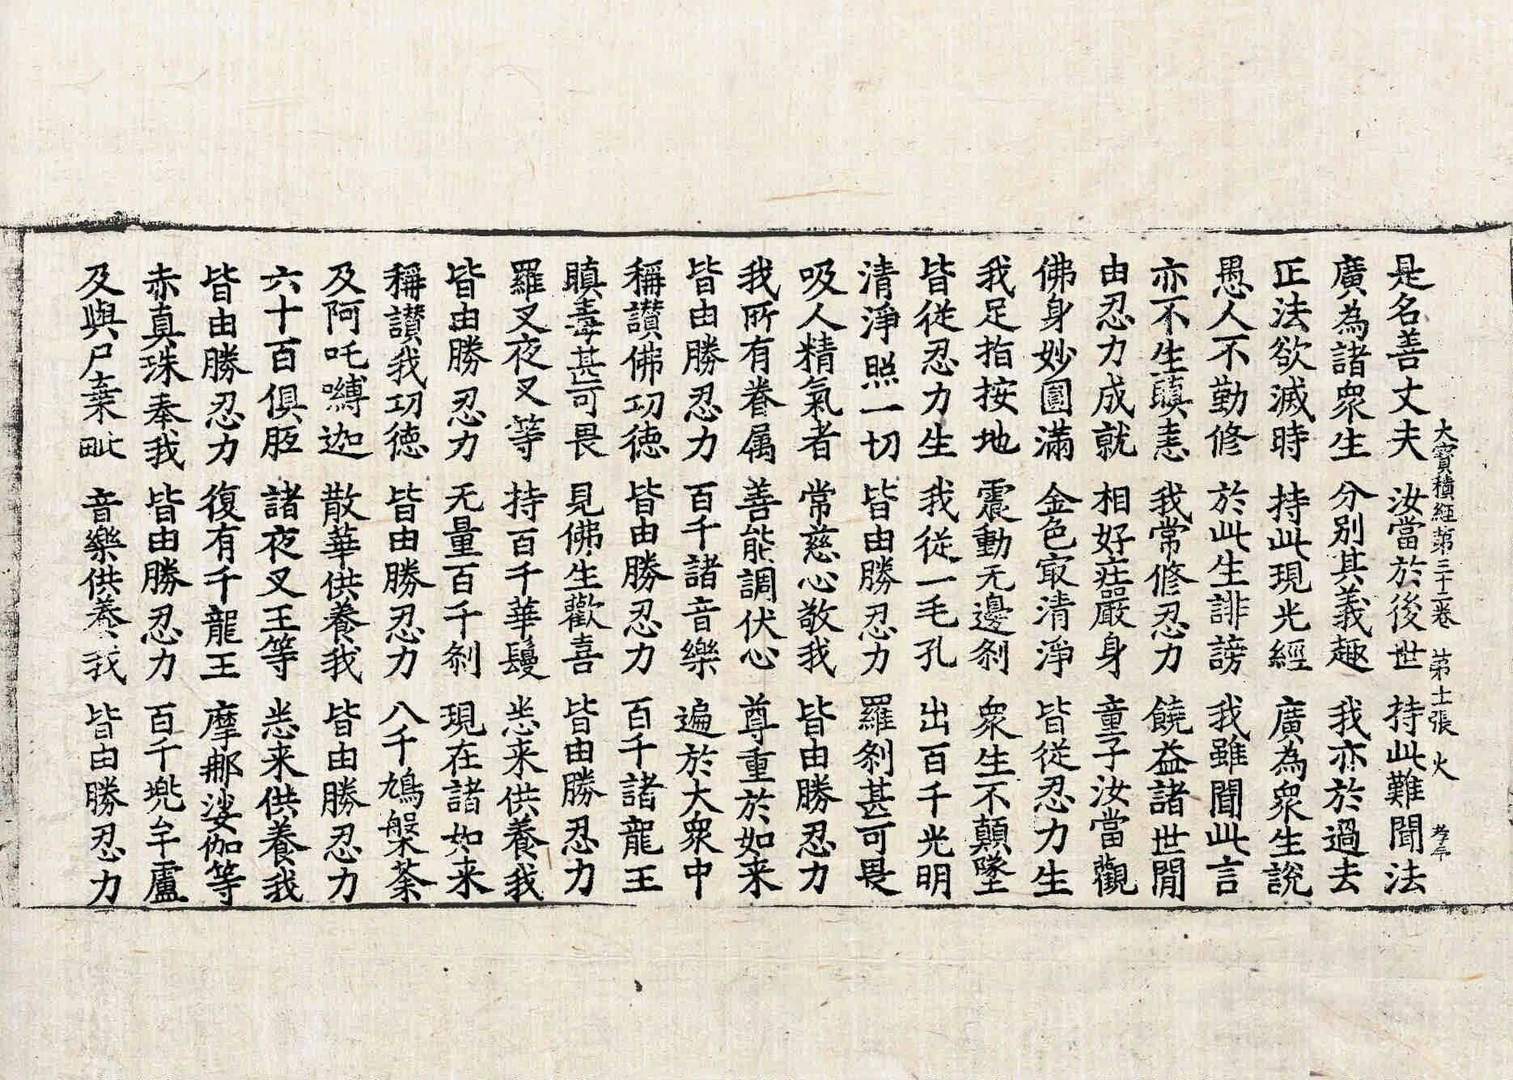 是名善丈夫 汝當於後世 持此難聞法
大寶積經第三十二卷 第十張 火
廣為諸眾生 分別其義趣 我亦於過去
正法欲滅時 持此現光經 廣為眾生說
愚人不勤修 於此生誹謗 我雖聞此言
亦不生瞋恚 我常修忍力 饒益諸世間
由忍力成就 相好莊嚴身 童子汝當觀
佛身妙圓滿 金色㝡清淨 皆從忍力生
我足指按地 震動无邊剎 眾生不顛墜
皆從忍力生 我從一毛孔 出百千光明
清淨照一切 皆由勝忍力 羅剎甚可畏
吸人精氣者 常慈心敬我 皆由勝忍力
我所有眷属 善能調伏心 尊重於如来
皆由勝忍力 百千諸音樂 遍於大眾中
稱讚佛功德 皆由勝忍力 百千諸龍王
瞋毒甚可畏 見佛生歡喜 皆由勝忍力
羅叉夜叉等 持百千華鬘 悉来供養我
皆由勝忍力 无量百千剎 現在諸如来
稱讚我功德 皆由勝忍力 八千鳩槃荼
及阿吒嚩迦 散華供養我 皆由勝忍力
六十百俱胝 諸夜叉王等 悉来供養我
皆由勝忍力 復有千龍王 摩那娑伽等
赤真珠奉我 皆由勝忍力 百千兜牟盧
及與尸棄毗 音樂供養我 皆由勝忍力